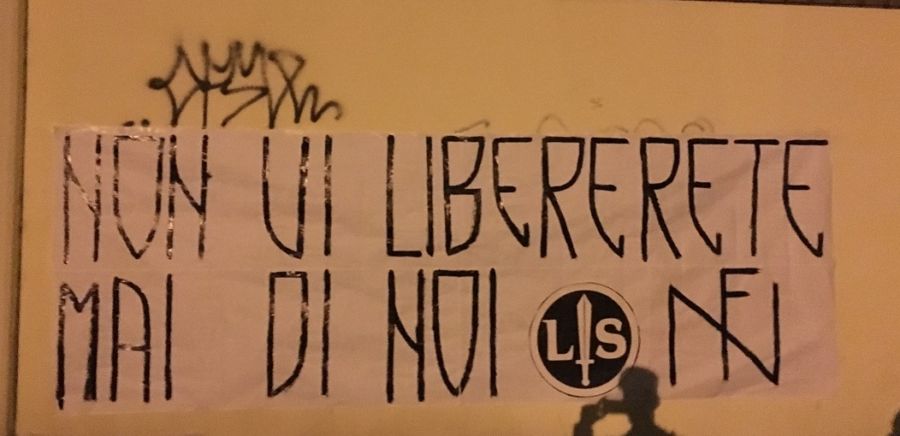 NON VI LIBERERETE
MAI DI NOI LS NFN